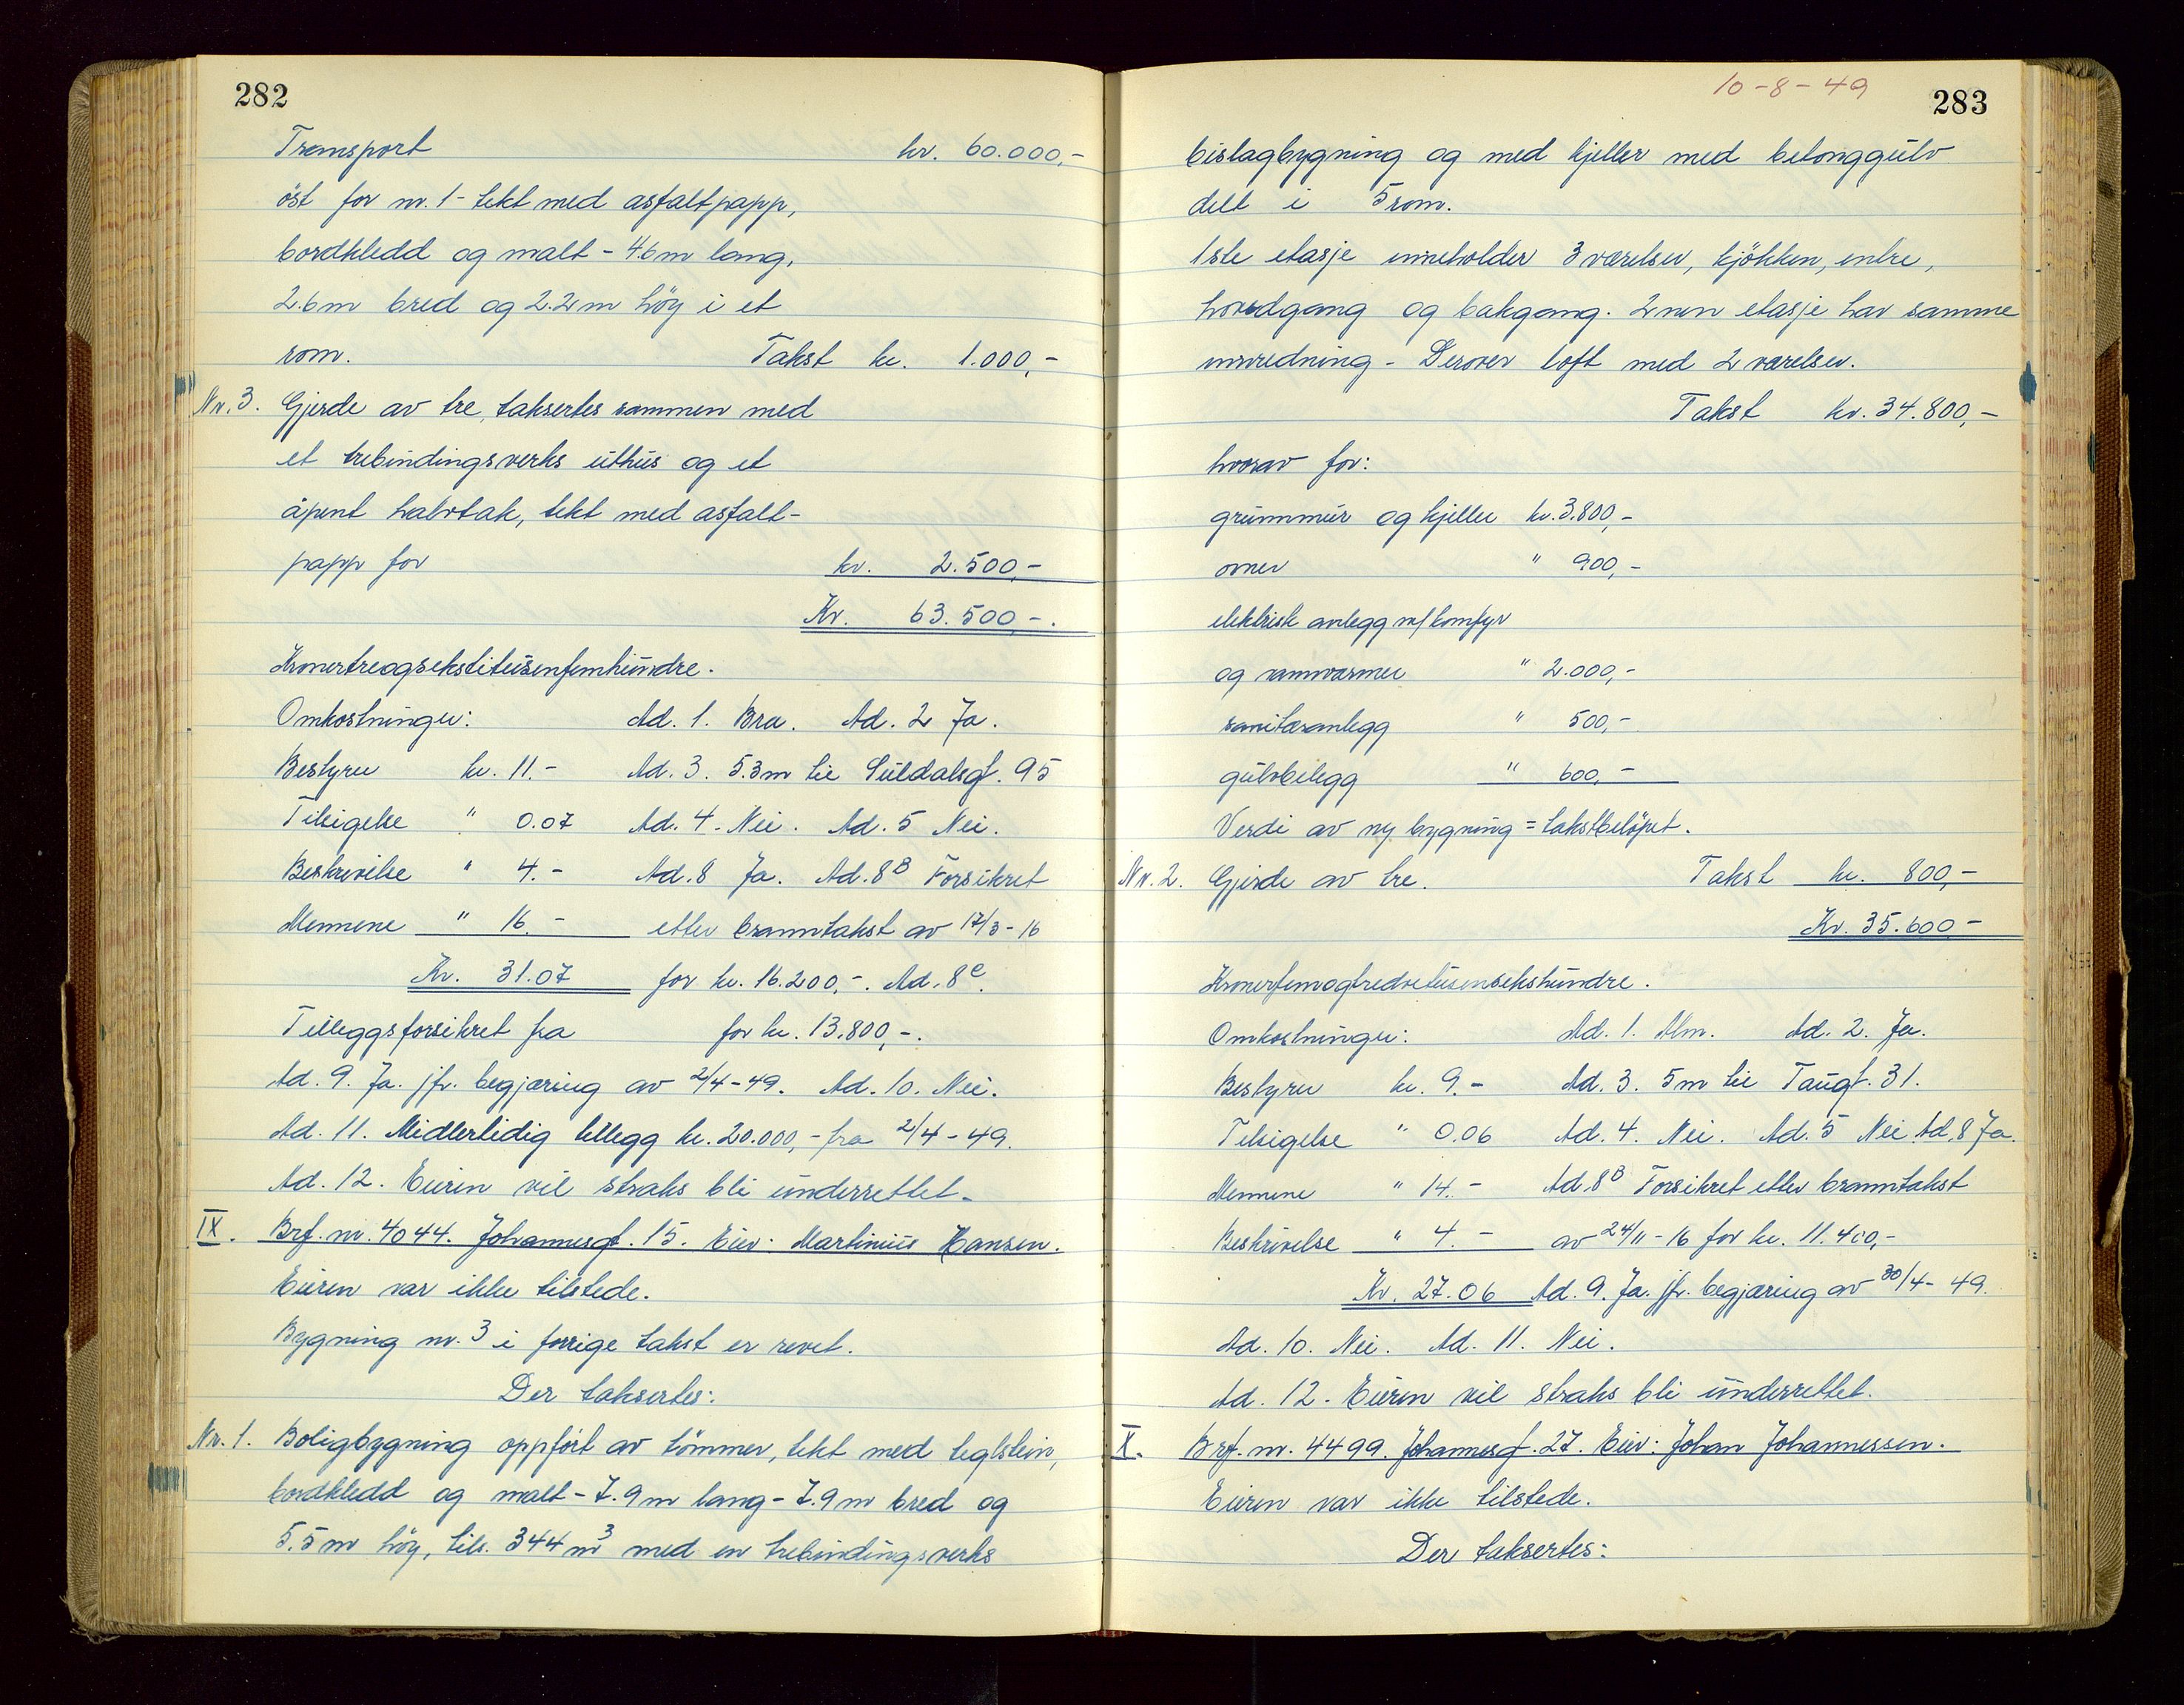 282
Transport kr. 60.000,-
öst for nr. 1 - tekt med asfaltpapp,
bordkledd og malt - 4.6 m lang,
2.6 m bred og 2.2 m höy i et
rom. Takst kr. 1.000,-
Nr. 3. Gjerde av tre, taksertes sammen med
et trebindingsverks uthus og et
åpent halvtak, tekt med asfalt-
papp for kr. 2.500,-
Kr. 63.500,-.
Kronertreogsekstitusenfemhundre.
Omkostninger: Ad. 1. Bra. Ad. 2 Ja.
Bestyrer kr. 11.- Ad. 3. 5.3 m til Suldalsgt. 95
Tilsigelse " 0.07 Ad. 4. Nei. Ad. 5 Nei.
Beskrivelse " 4.- Ad. 8 Ja. Ad. 8B Forsikret
Mennene " 16.- etter branntakst av 17/3-16
Kr. 31.07 for kr. 16.200,-. Ad. 8c.
Tilleggsforsikret fra for kr. 13.800,-.
Ad. 9. Ja. jfr. begjæring av 2/4-49. Ad. 10. Nei.
Ad. 11. Midlertidig tillegg kr. 20.000,- fra 2/4-49.
Ad. 12. Eieren vil straks bli underrettet.
IX. Brf. nr. 4044. Johannesgt. 15. Eier: Martinius Hansen.
Eieren var ikke tilstede.
Bygning nr. 3 i forrige takst er revet.
Der taksertes:
Nr. 1. Boligbygning oppfört av tömmer, tekt med teglstein,
bordkledd og malt - 7.9 m lang - 7.9 m bred og
5.5 m höy, tils. 344 m3 med en trebindingsverks
10-8-49
283
bislagbygning og med kjeller med betonggulv
delt i 5 rom.
1ste etasje inneholder 3 værelser, kjökken, entre,
hovedgang og bakgang. 2nen etasje har samme
innredning - Derover loft med 2 værelser.
Takst kr. 34.800,-
hvorav for:
grunnmur og kjeller kr. 3.800,-
ovner " 900,-
elektrisk anlegg m/komfyr
og vannvarmer " 2.000,-
sanitæranlegg " 500,-
gulvbelegg " 600,-
Verdi av ny bygning = takstbelöpet.
Nr. 2. Gjerde av tre. Takst kr. 800,-
Kr. 35.600,-
Kronerfemogtredvetusensekshundre.
Omkostninger: Ad. 1. Alm. Ad. 2. Ja.
Bestyrer kr. 9.- Ad. 3. 5 m til Taugt. 31.
Tilsigelse " 0.06 Ad. 4. Nei. Ad. 5 Nei Ad. 8 Ja.
Mennene " 14.- Ad. 8B Forsikret etter branntakst
Beskrivelse " 4.- av 24/11-16 for kr. 11.400,-
Kr. 27.06 Ad. 9. Ja. jfr. begjæring av 30/4-49.
Ad. 10. Nei. Ad. 11. Nei.
Ad. 12. Eieren vil straks bli underrettet.
X. Brf. nr. 4499. Johannesgt. 27. Eier: Johan Johannessen.
Eieren var ikke tilstede.
Der taksertes: